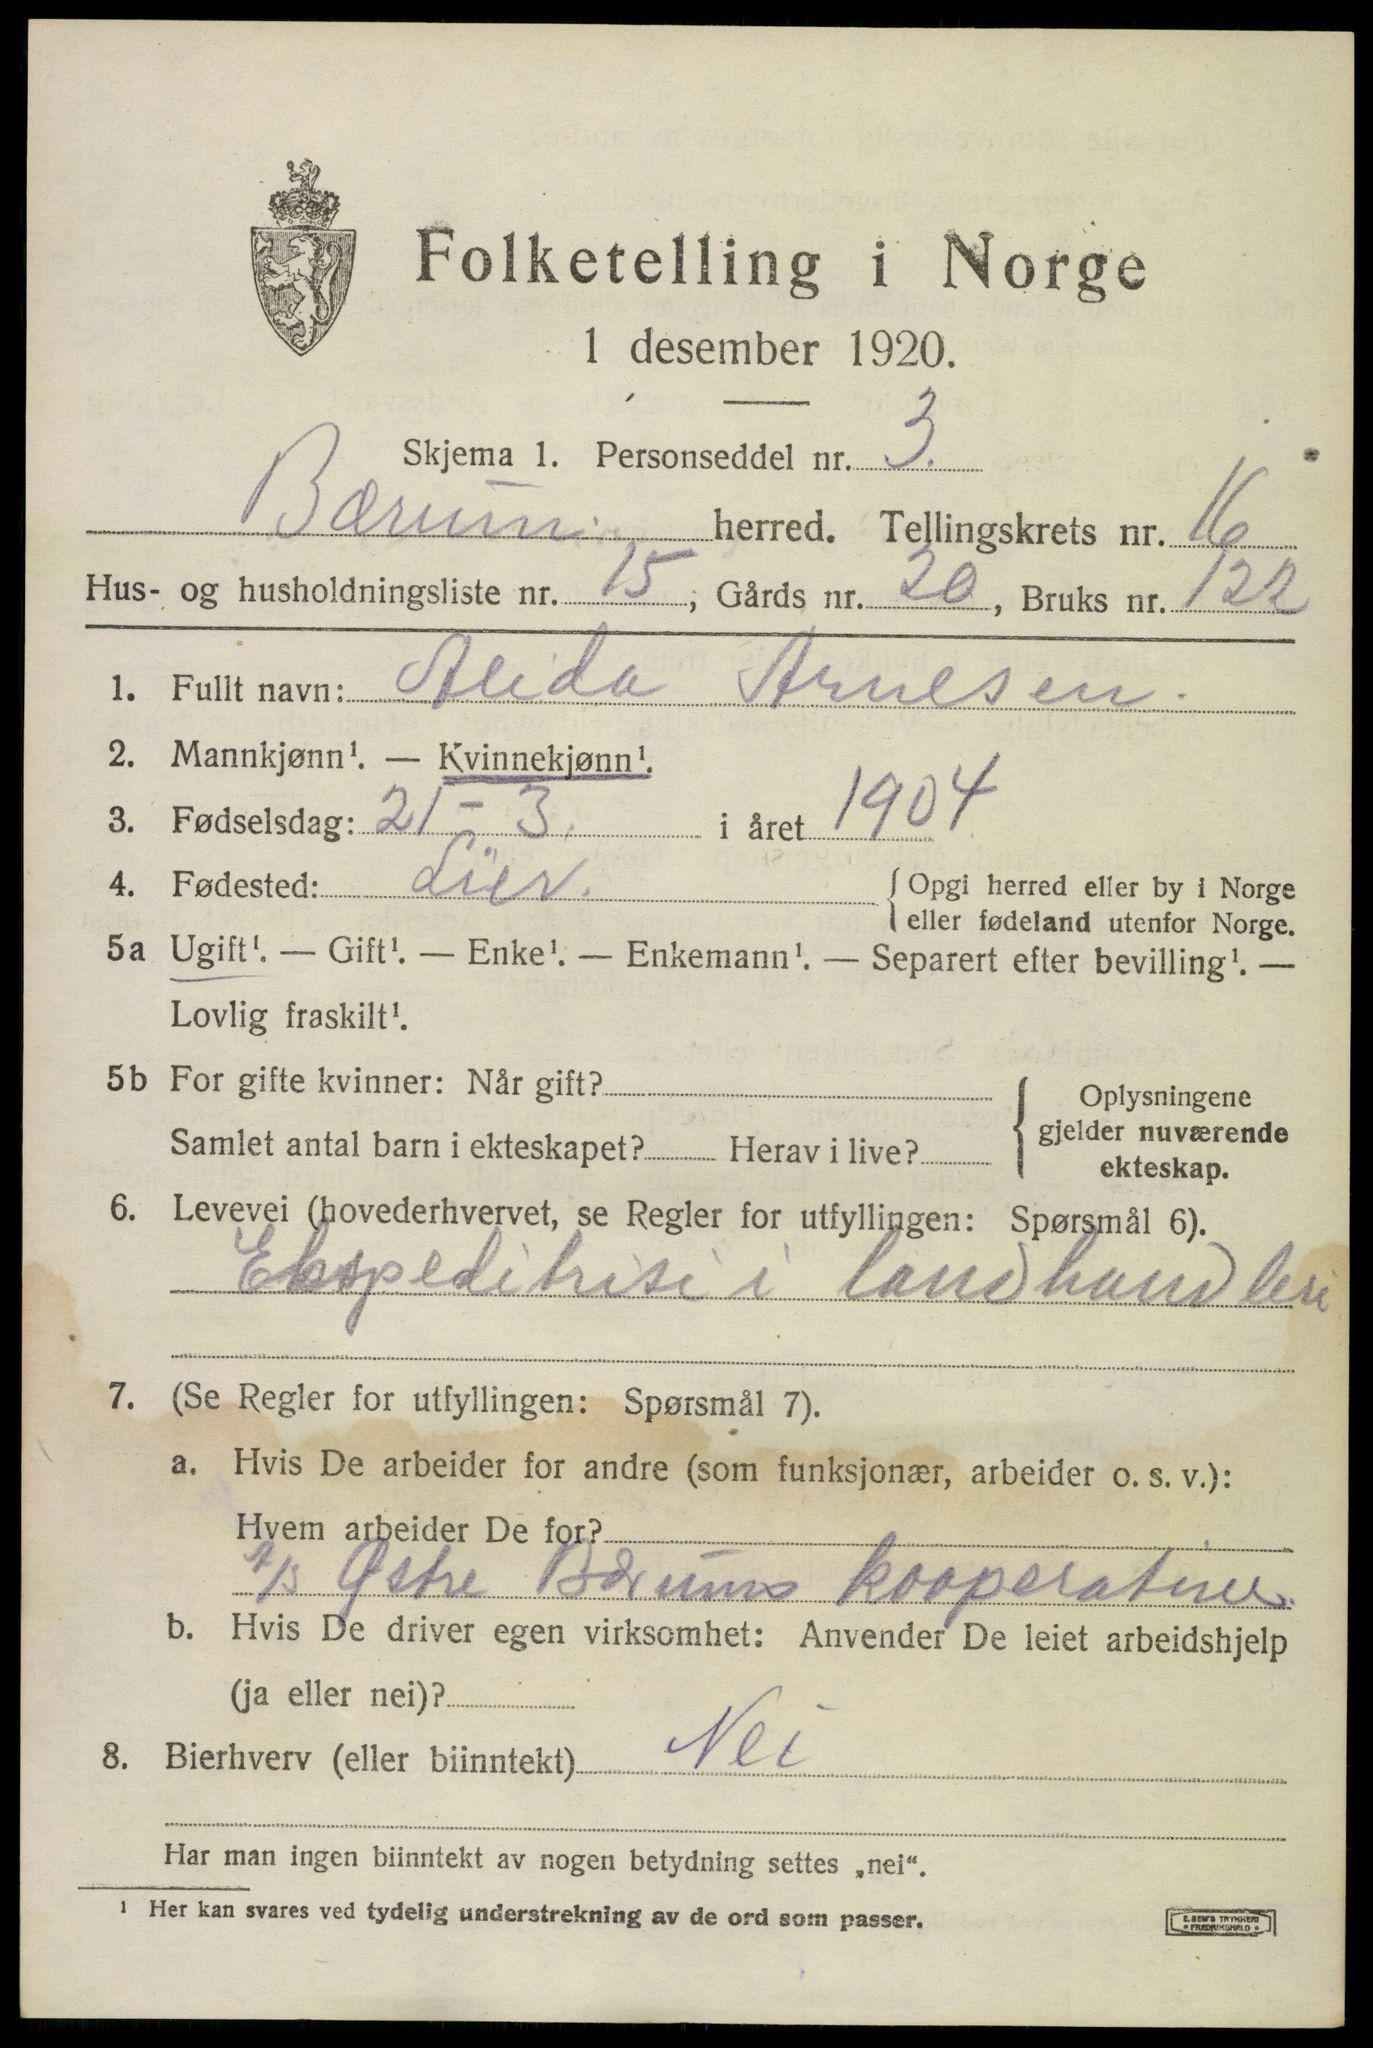 Folketelling i Norge
1 desember 1920.
Skjema 1. Personseddel nr. 3.
Bærum herred. Tellingskrets nr. 16
Hus- og husholdningsliste nr. 15, Gårds nr. 20, Bruks nr. 122
1. Fullt navn: Alida Arnesen.
2. Mannkjønn¹. — Kvinnekjønn¹.
3. Fødselsdag: 21-3. i året 1904
4. Fødested: Lier. {Opgi herred eller by i Norge
eller fødeland utenfor Norge.
5a Ugift¹. — Gift¹. — Enke¹. — Enkemann¹. — Separert efter bevilling¹. —
Lovlig fraskilt¹.
5b For gifte kvinner: Når gift? { Oplysningene
gjelder nuværende
Samlet antal barn i ekteskapet? Herav i live?
ekteskap.
6. Levevei (hovederhvervet, se Regler for utfyllingen: Spørsmål 6).
Ekspeditrise i landhandleri
7. (Se Regler for utfyllingen: Spørsmål 7).
a. Hvis De arbeider for andre (som funksjonær, arbeider o. s. v.):
Hvem arbeider De for?
A/S Østre Bærums kooperative.
b. Hvis De driver egen virksomhet: Anvender De leiet arbeidshjelp
(ja eller nei)?
8. Bierhverv (eller biinntekt) Nei
Har man ingen biinntekt av nogen betydning settes „nei“.
¹ Her kan svares ved tydelig understrekning av de ord som passer.
E. SEM'S TRYKKERI
FREDRIKSHALD